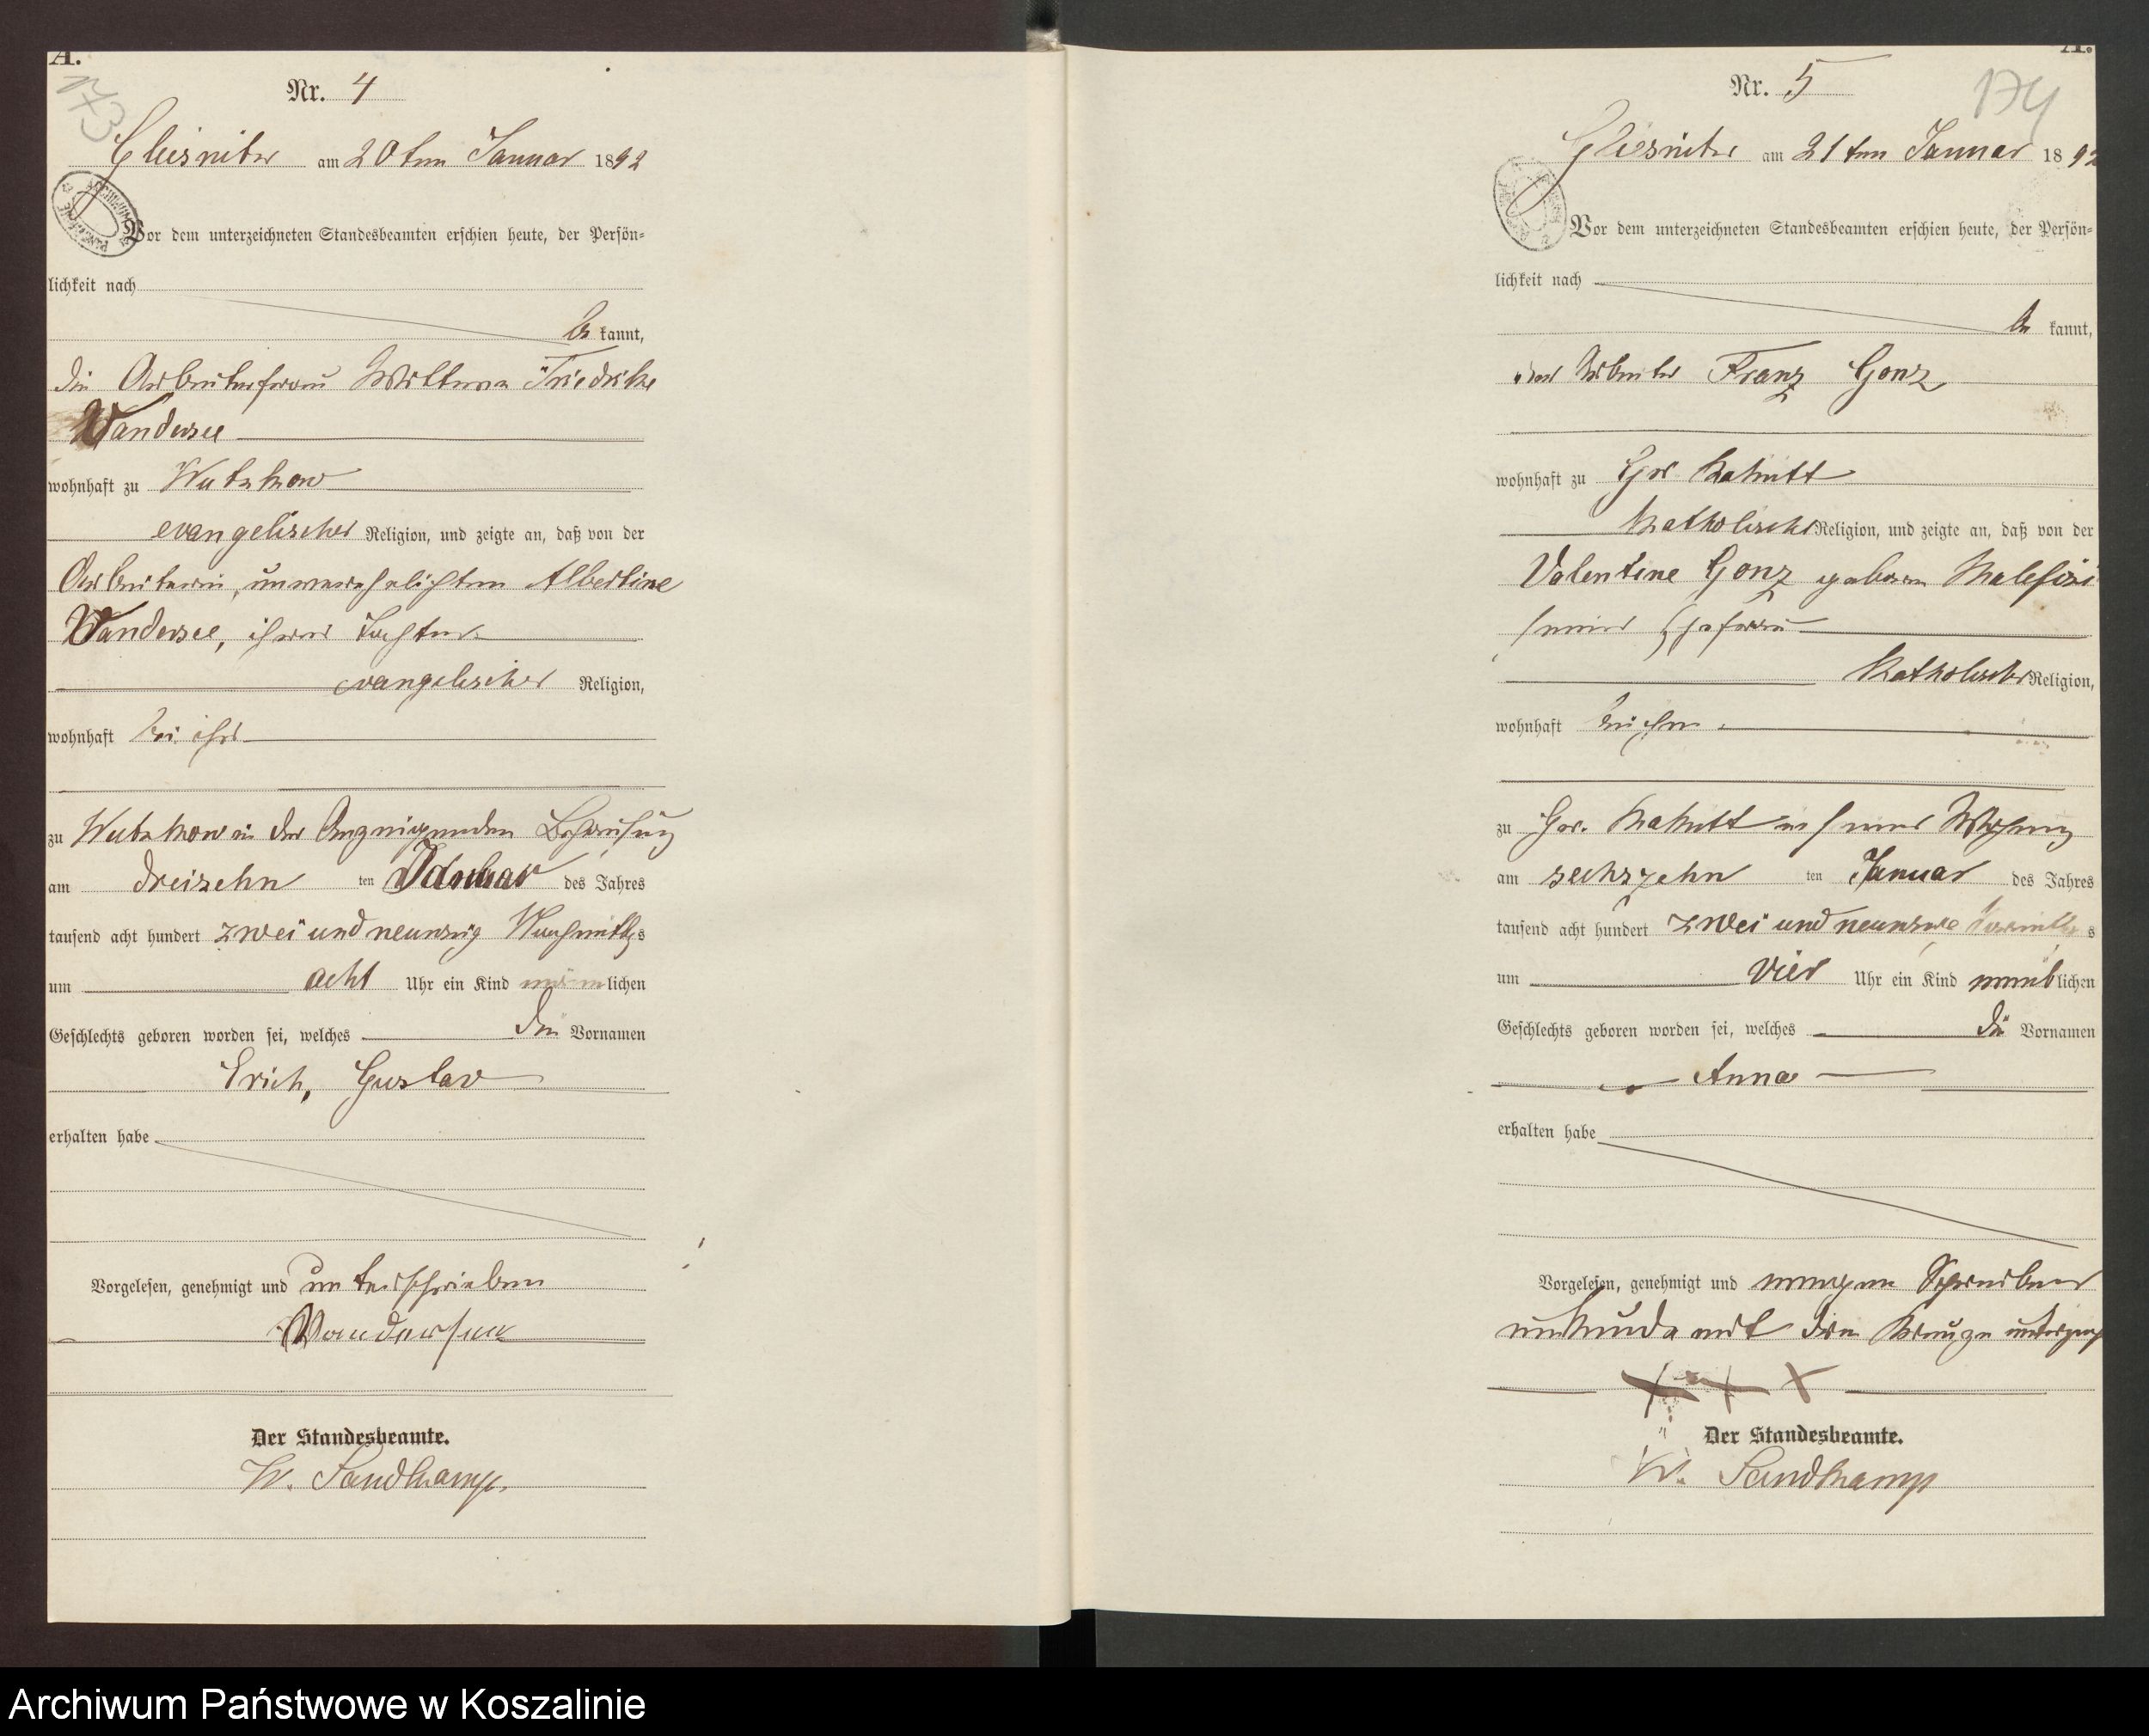 A.
173
Nr. 4
Gliesnitz am 20ten Januar 1892
Vor dem unterzeichneten Standesbeamten erschien heute, der Persön-
lichkeit nach
be kannt,
die Arbeiterfrau Wittwe Friedrike
Wandersee
wohnhaft zu Wutzkow
evangelischer Religion, und zeigte an, daß von der
Arbeiterin, unverehelichten Albertine
Wandersee, ihrer Tochter
evangelischer Religion,
wohnhaft bei ihr
zu Wutzkow in der Anzeigenden Behausung
am dreizehn ten Januar des Jahres
tausend acht hundert zwei und neunzig Nachmittags
um acht Uhr ein Kind männlichen
Geschlechts geboren worden sei, welches die Vornamen
Erich, Gustav
erhalten habe
Vorgelesen, genehmigt und unterschrieben
Wandersee
Der Standesbeamte.
W. Sandkamp.
A.
174
Nr. 5
Gliesnitz am 21ten Januar 1892
Vor dem unterzeichneten Standesbeamten erschien heute, der Persön-
lichkeit nach
be kannt,
der Arbeiter Franz Gonz
wohnhaft zu Gr. Rakitt
katholischer Religion, und zeigte an, daß von der
Valentine Gonz geborene
seiner Ehefrau
katholischer Religion,
wohnhaft bei ihm
zu Gr. Rakitt in seiner Wohnung
am sechszehn ten Januar des Jahres
tausend acht hundert zwei und neunzig Vormittags
um vier Uhr ein Kind weiblichen
Geschlechts geboren worden sei, welches die Vornamen
Anna
erhalten habe
Vorgelesen, genehmigt und wegen Schreibens
unkunde mit drei Kreuze
+ + +
Der Standesbeamte.
W. Sandkamp
Archiwum Państwowe w Koszalinie